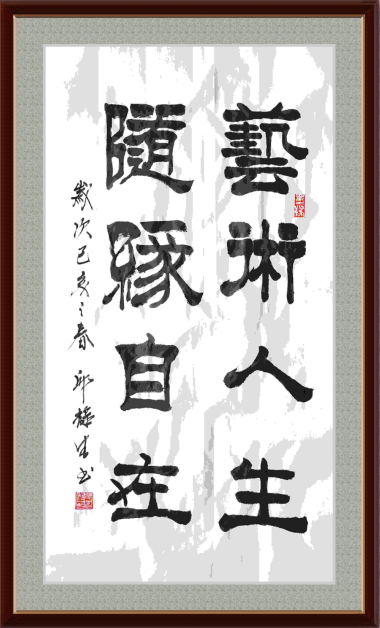 藝術人生
隨緣自在
歲次己亥之春 邱
生书